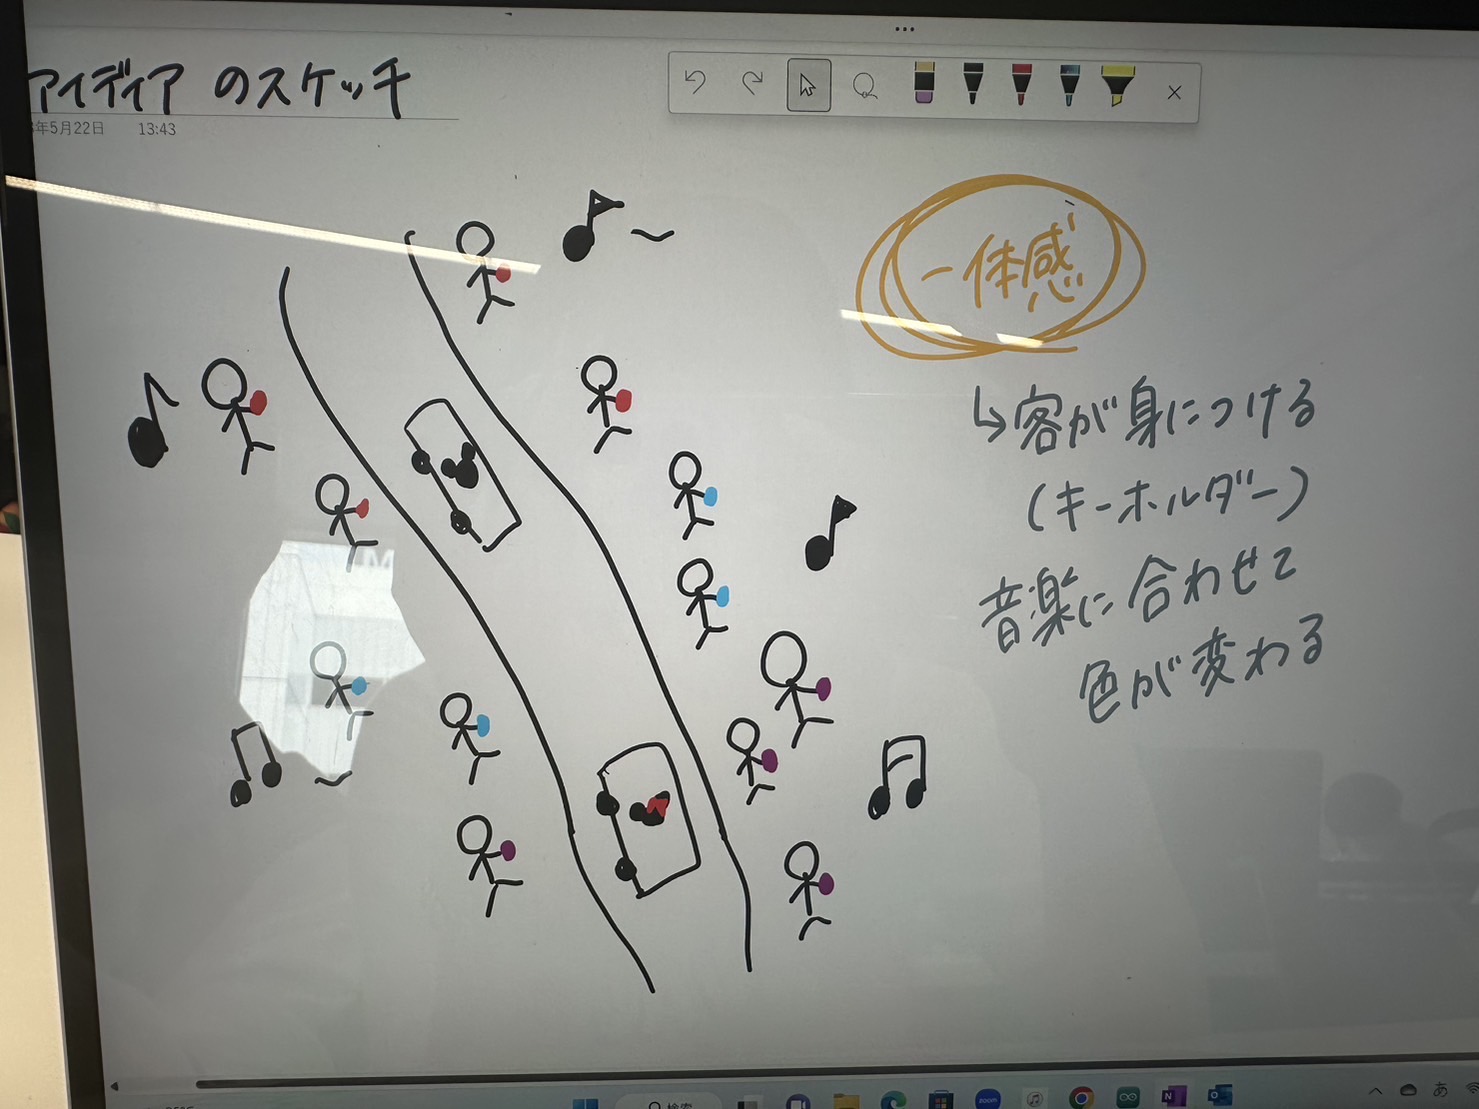 アイディア のスケッチ
年5月22日 13:43
一体感
↳客が身につける
(キーホルダー)
音楽に合わせて
色が変わる
zoom
検索
あ